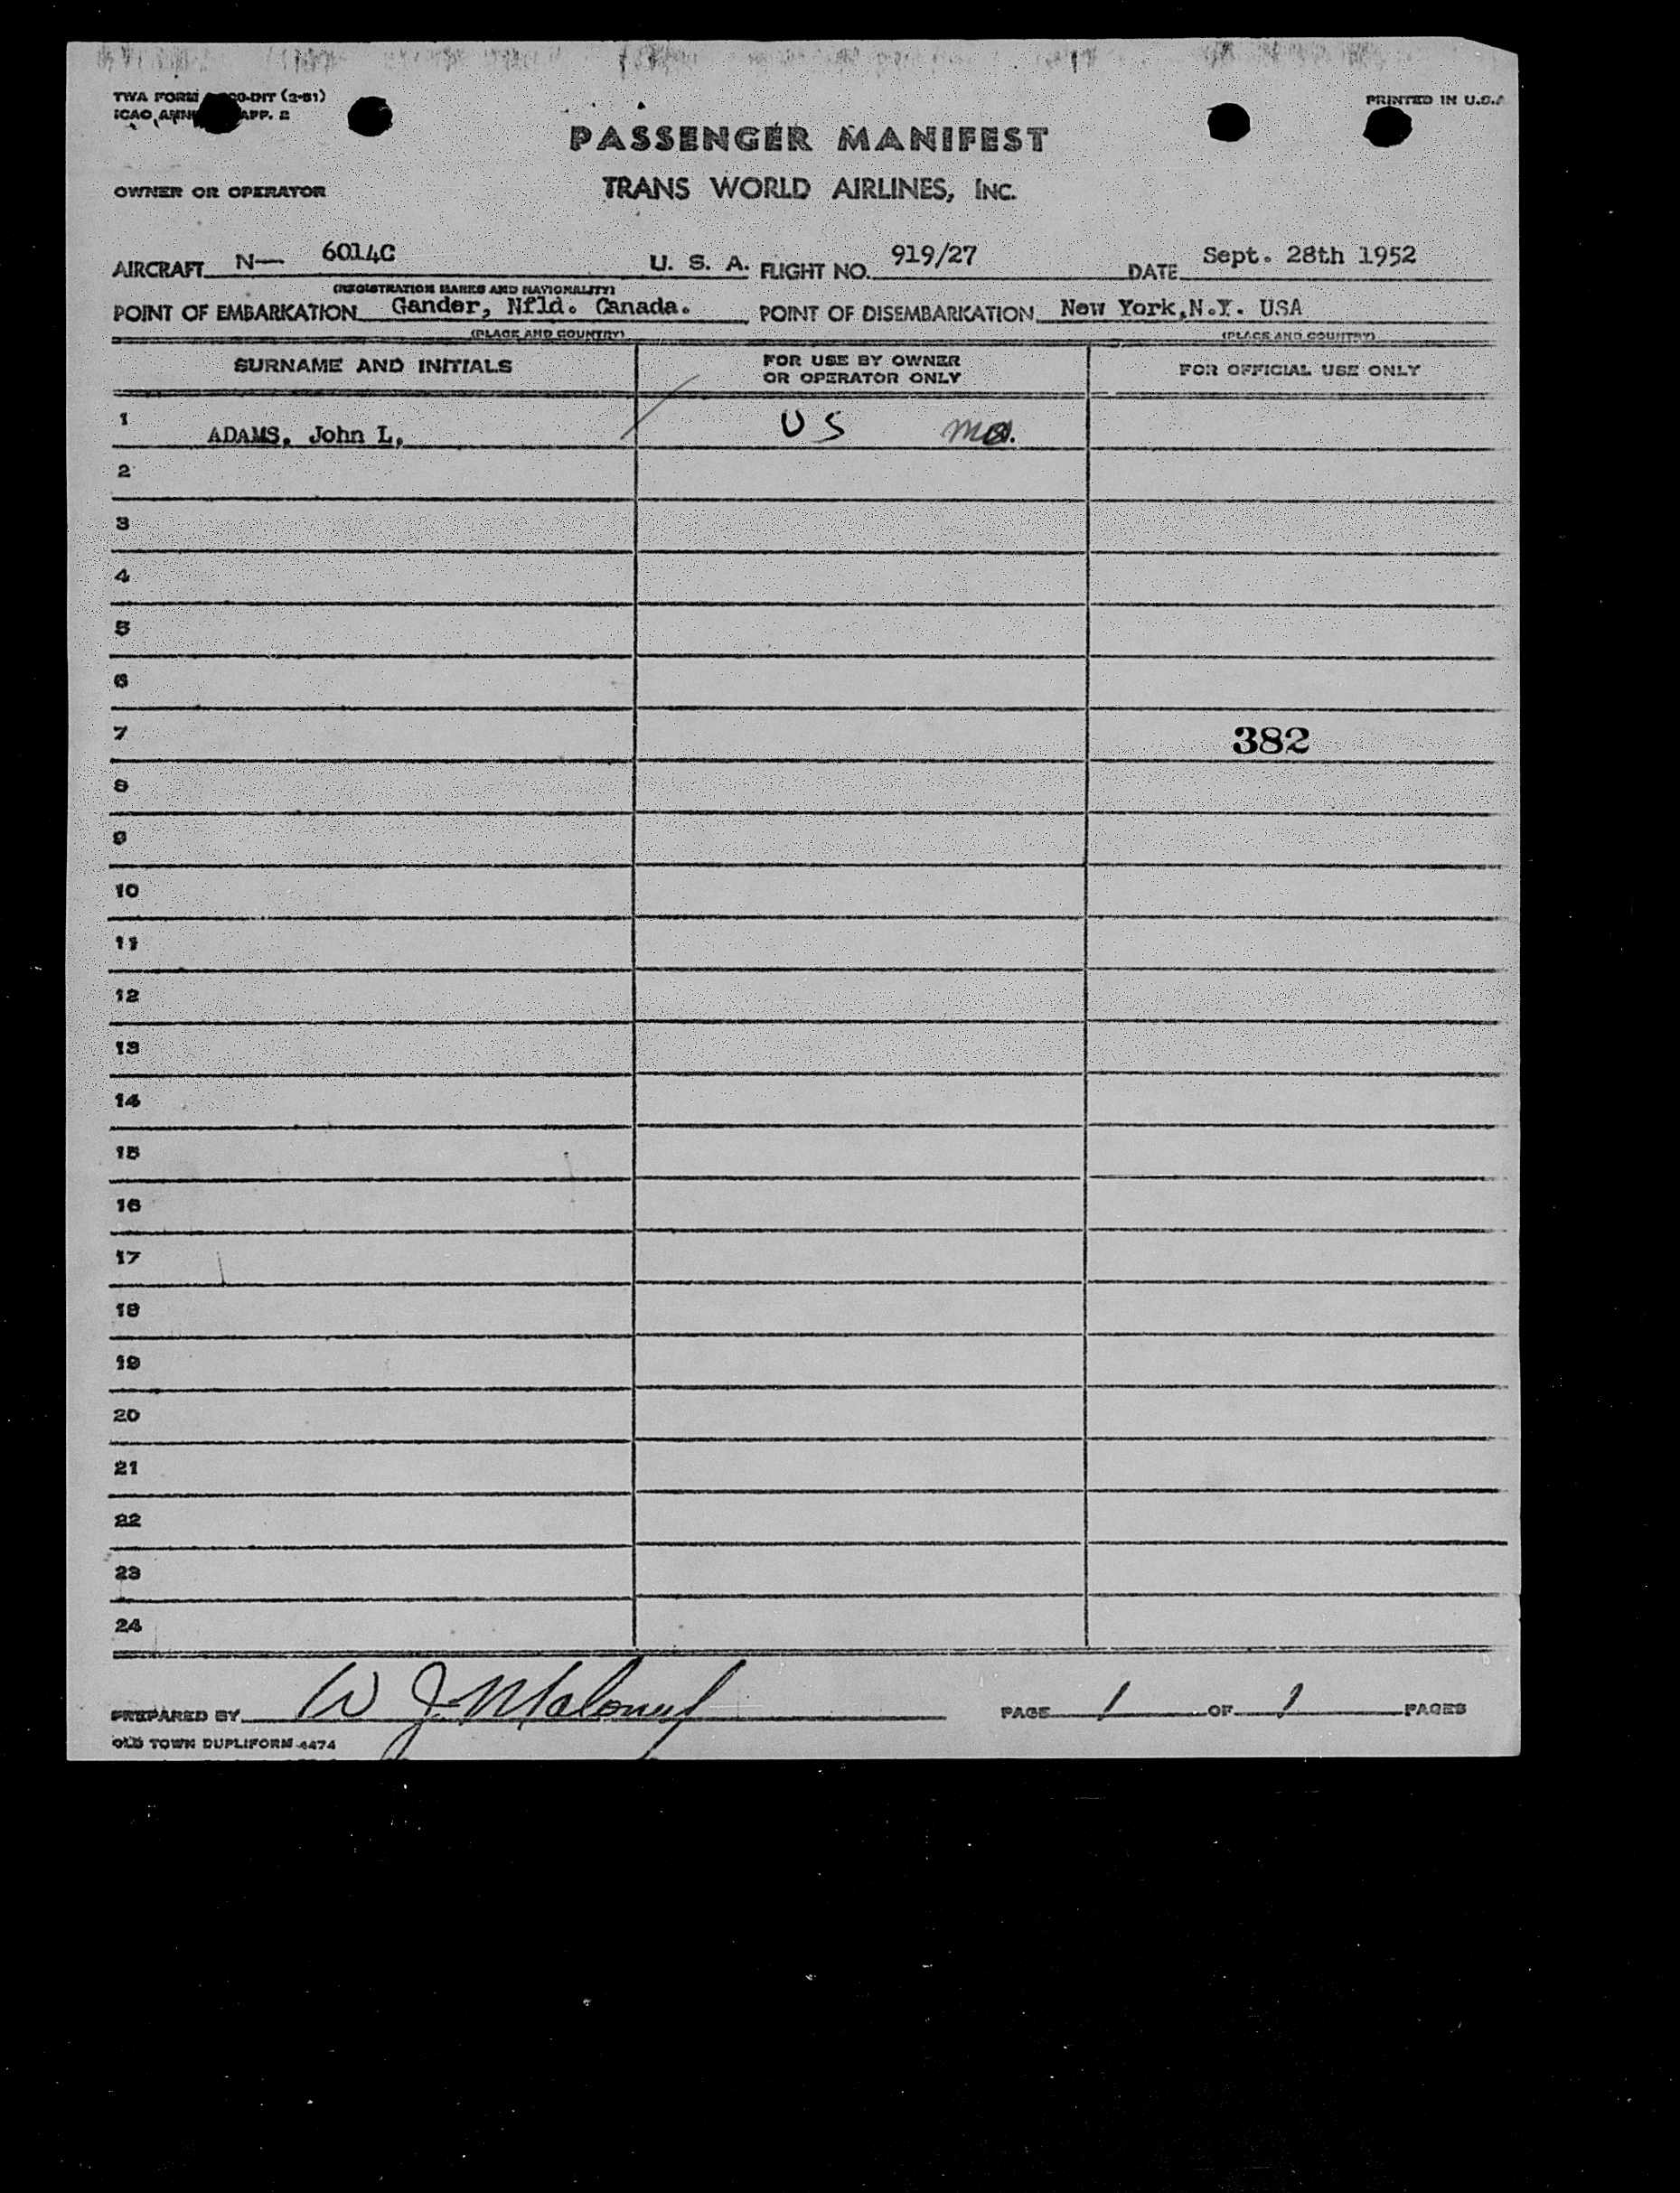 TWA FORM
ICAO APP. 2
PRINTED IN U.S.A
PASSENGER MANIFEST
OWNER OR OPERATOR TRANS WORLD AIRLINES, INC.
AIRCRAFT N— 6014C U. S. A. FLIGHT NO. 919/27 DATE Sept. 28th 1952
(REGISTRATION MARKS AND NATIONALITY)
POINT OF EMBARKATION Gander, Nfld. Canada. POINT OF DISEMBARKATION New York,N.Y. USA
(PLACE AND COUNTRY) (PLACE AND COUNTRY)
SURNAME AND INITIALS FOR USE BY OWNER OR OPERATOR ONLY FOR OFFICIAL USE ONLY
1 ADAMS, John L. US
2
3
4
5
6
7 382
8
9
10
11
12
13
14
15
16
17
18
19
20
21
22
23
24
PREPARED BY W J. Maloney PAGE 1 OF 1 PAGES
OLD TOWN DUPLIFORM 4474